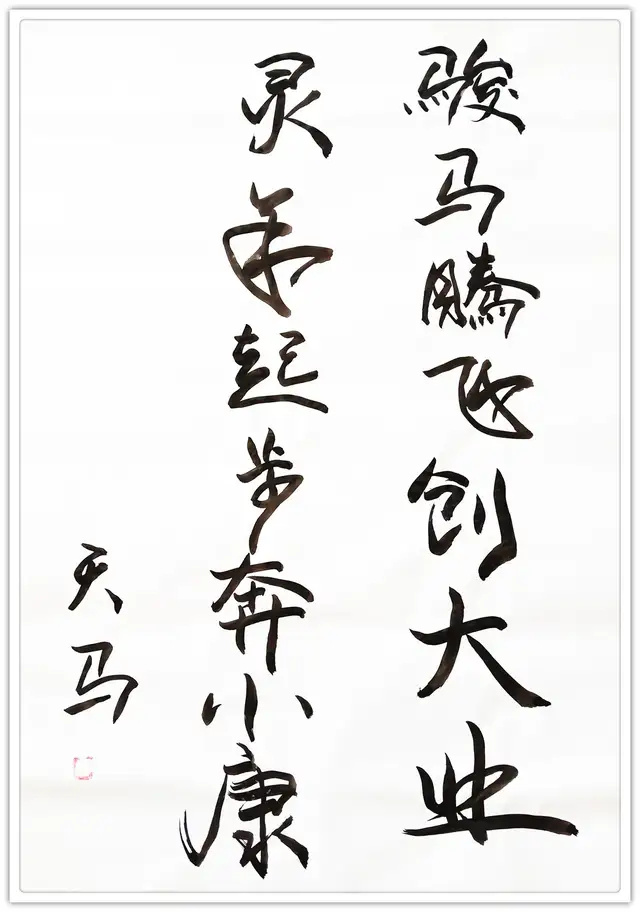 骏马腾飞创大业
灵羊起步奔小康
天马